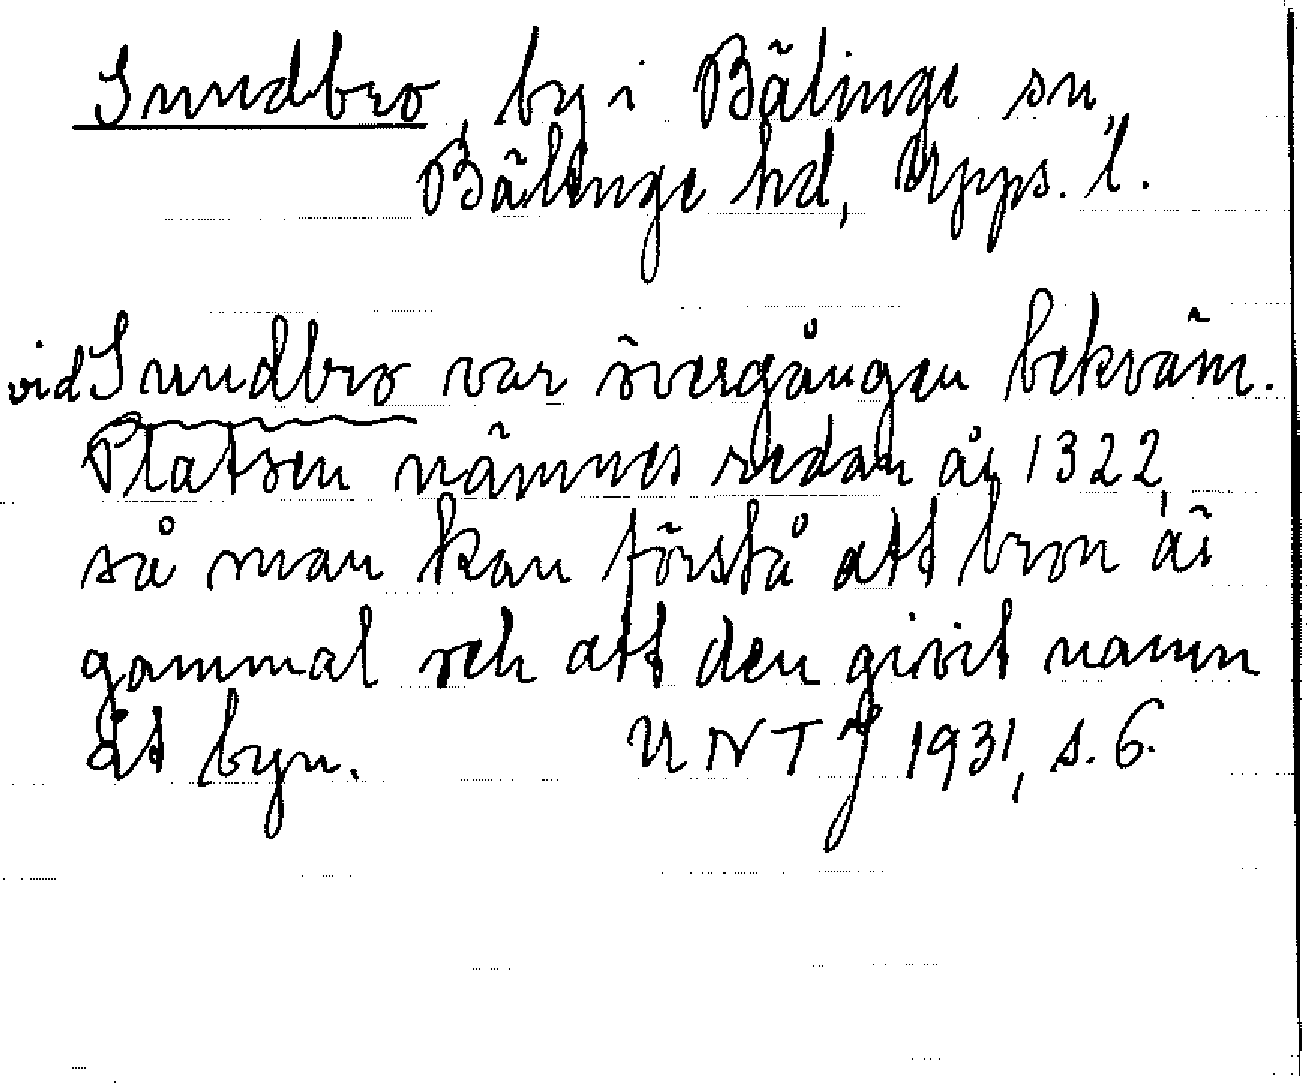 Sundbro, by i Bälinge sn,
Bälinge hd, Upps. l.
vid Sundbro var övergången bekväm.
Platsen nämnes redan år 1322,
så man kan förstå att bron är
gammal och att den givit namn
åt byn. UNTJ 1931, s. 6.